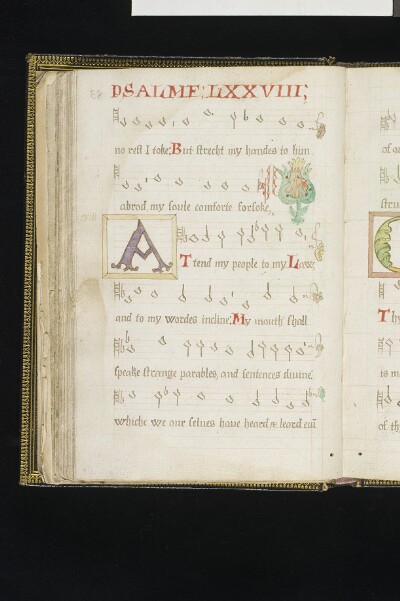 PSALME LXXVIII;
no rest I toke; But strecht my handes to him
abrod, my soule comforte forsoke,
A Ttend my people to my Lawe,
and to my wordes incline, My mouth shall
speake strange parables, and sentences divine,
whiche we our selves have heard & leard
of
stru
Th
is m
of th